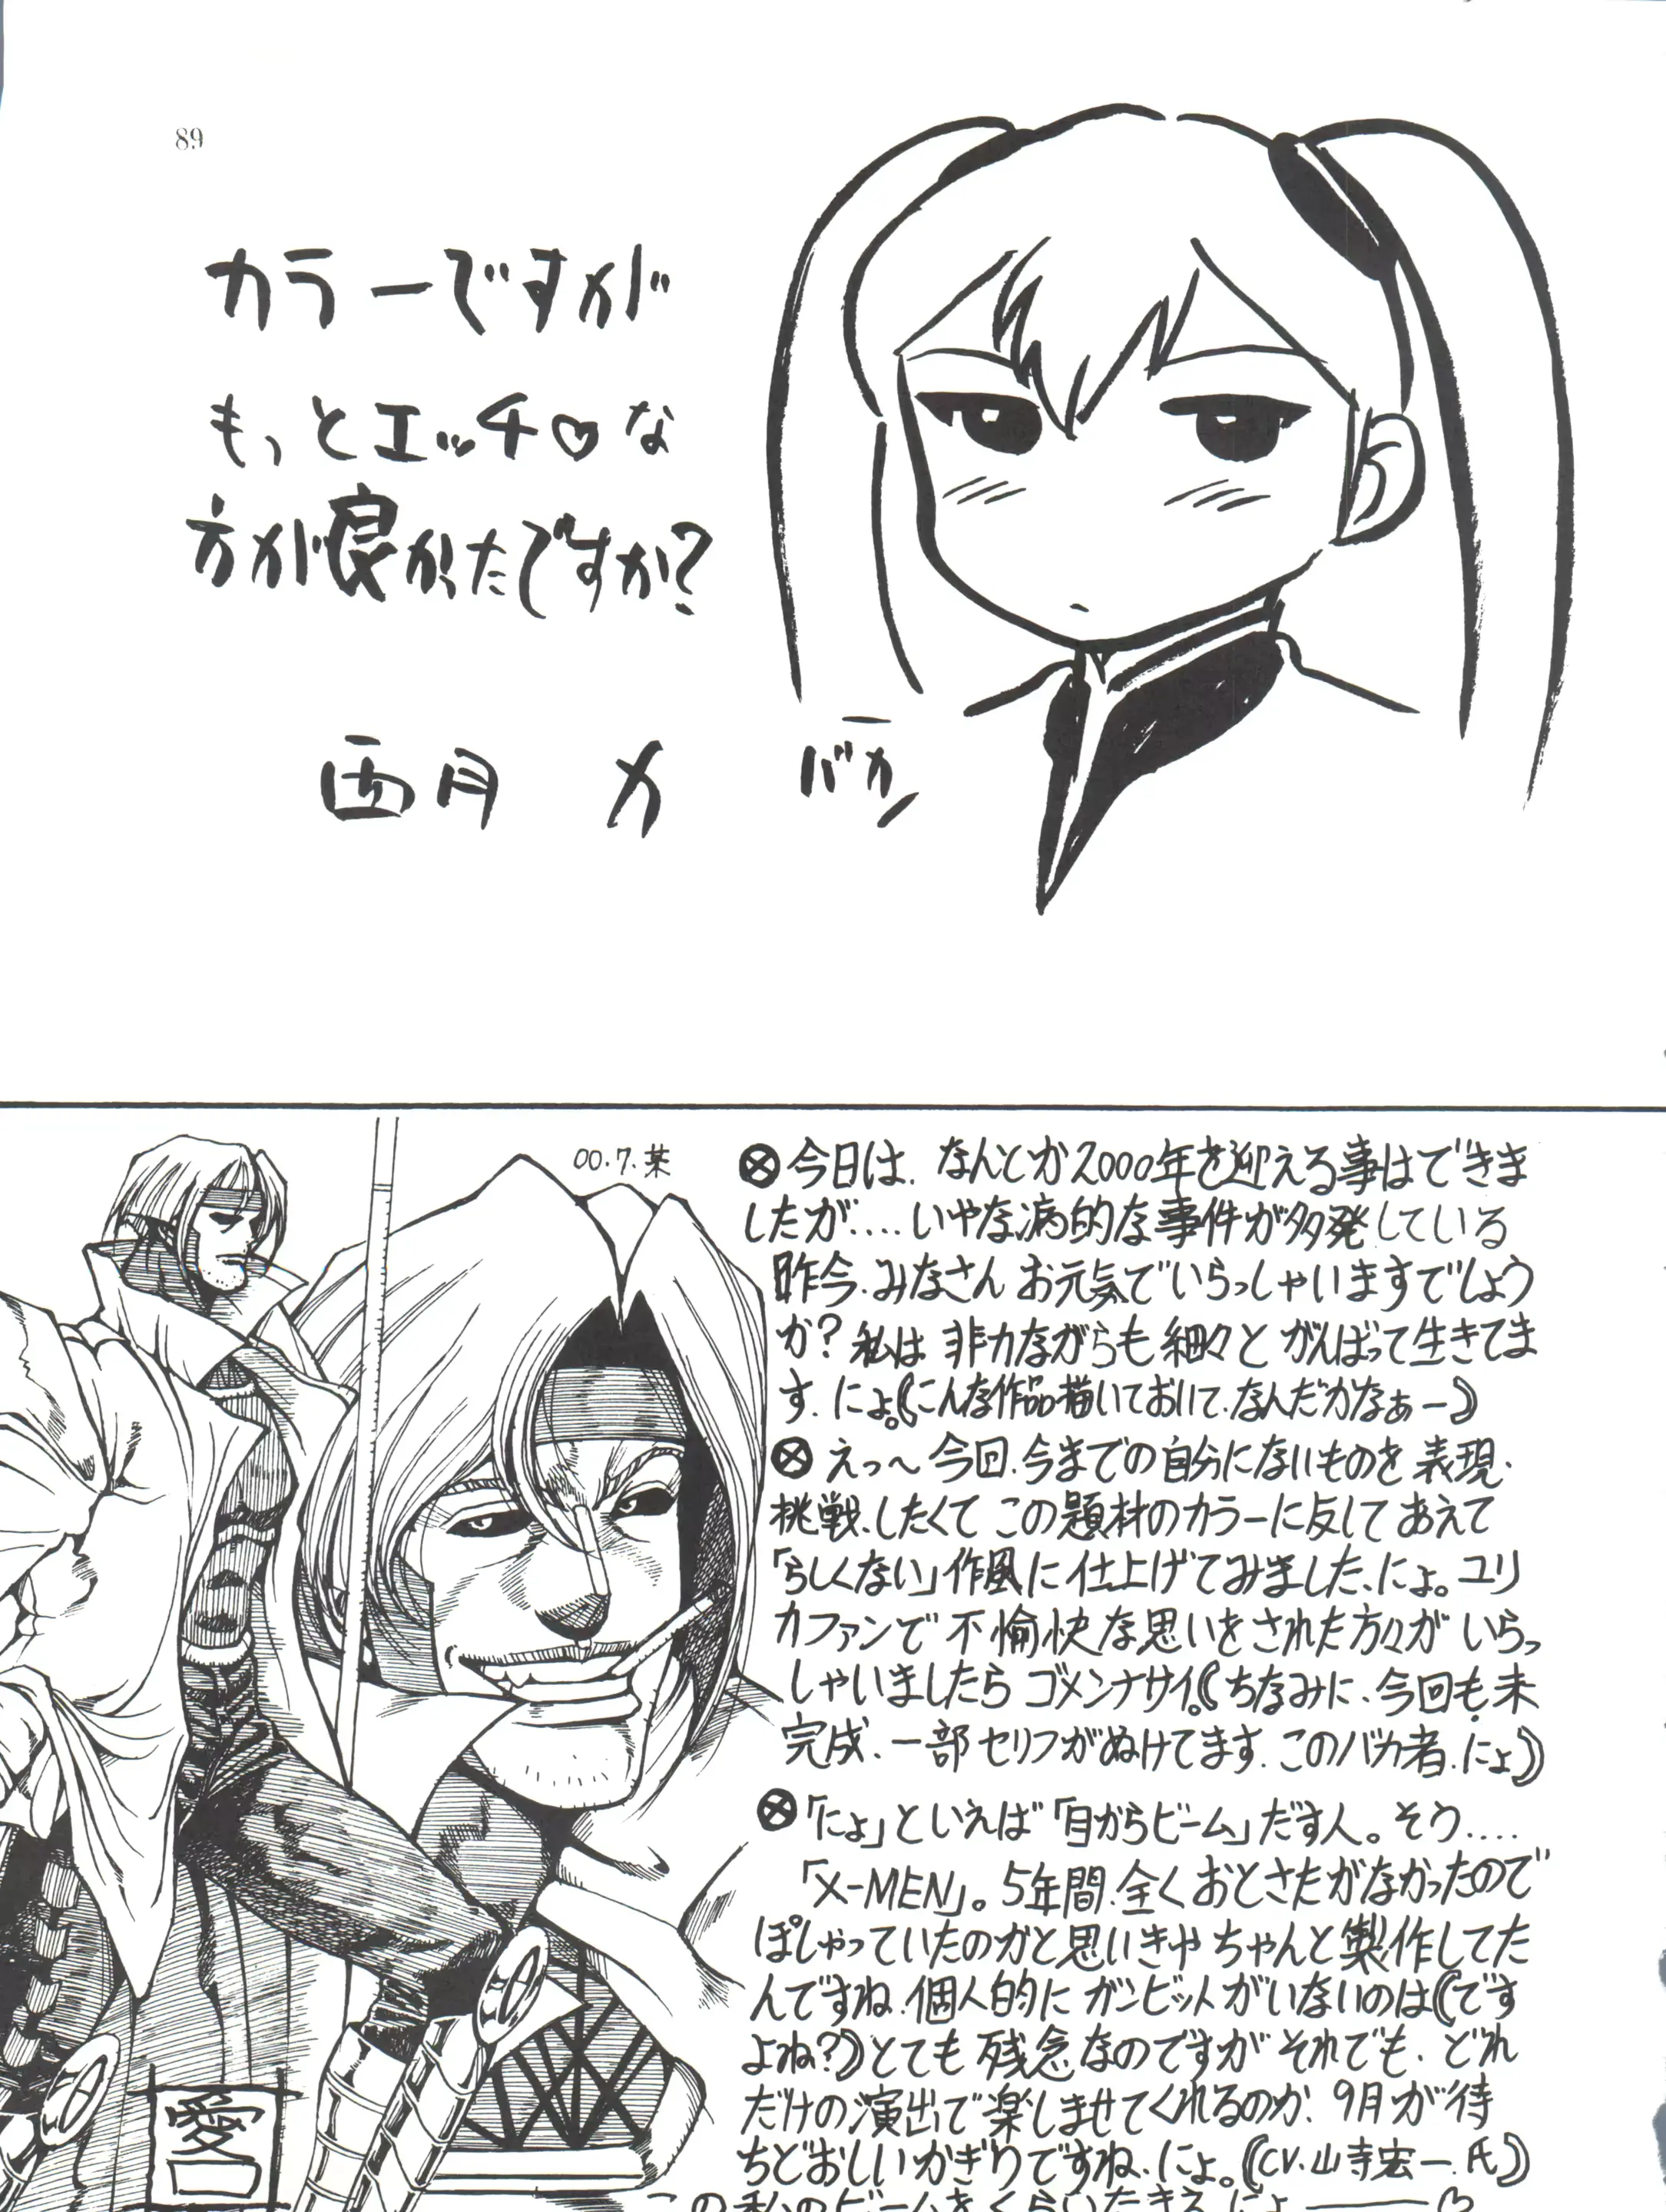 89
カラーですが
もっとエッチ♡な
方が良かったですか?
西月 力
バカ
00.7.某
⊗今日は、なんとか2000年を迎える事はできま
したが‥‥いやな病的な事件が多発している
昨今、みなさん お元気でいらっしゃいますでしょう
か? 私は 非力ながらも 細々と がんばって生きてま
す、にょ。(こんな作品描いておいて、なんだかなぁー)
⊗ えっ〜 今回、今までの自分にないものを 表現、
挑戦、したくて この題材のカラーに反して あえて
「らしくない」作風に仕上げてみました、にょ。ユリ
カファンで 不愉快な思いをされた方々が いらっ
しゃいましたら ゴメンナサイ。(ちなみに、今回も未
完成、一部セリフがぬけてます、このバカ者、にょ)
⊗「にょ」といえば「目からビーム」だす人。そう‥‥
「X-MEN」。5年間、全くおとさたがなかったので
ぽしゃっていたのかと思いきや ちゃんと製作してた
んですね、個人的に ガンビットがいないのは(です
よね?)とても 残念なのですが それでも、どれ
だけの演出で楽しませてくれるのか、9月が待
ちどおしいかぎりですね、にょ。(CV.山寺宏一.氏)
この私のビームをくらいたまえ にょ――♡
愛